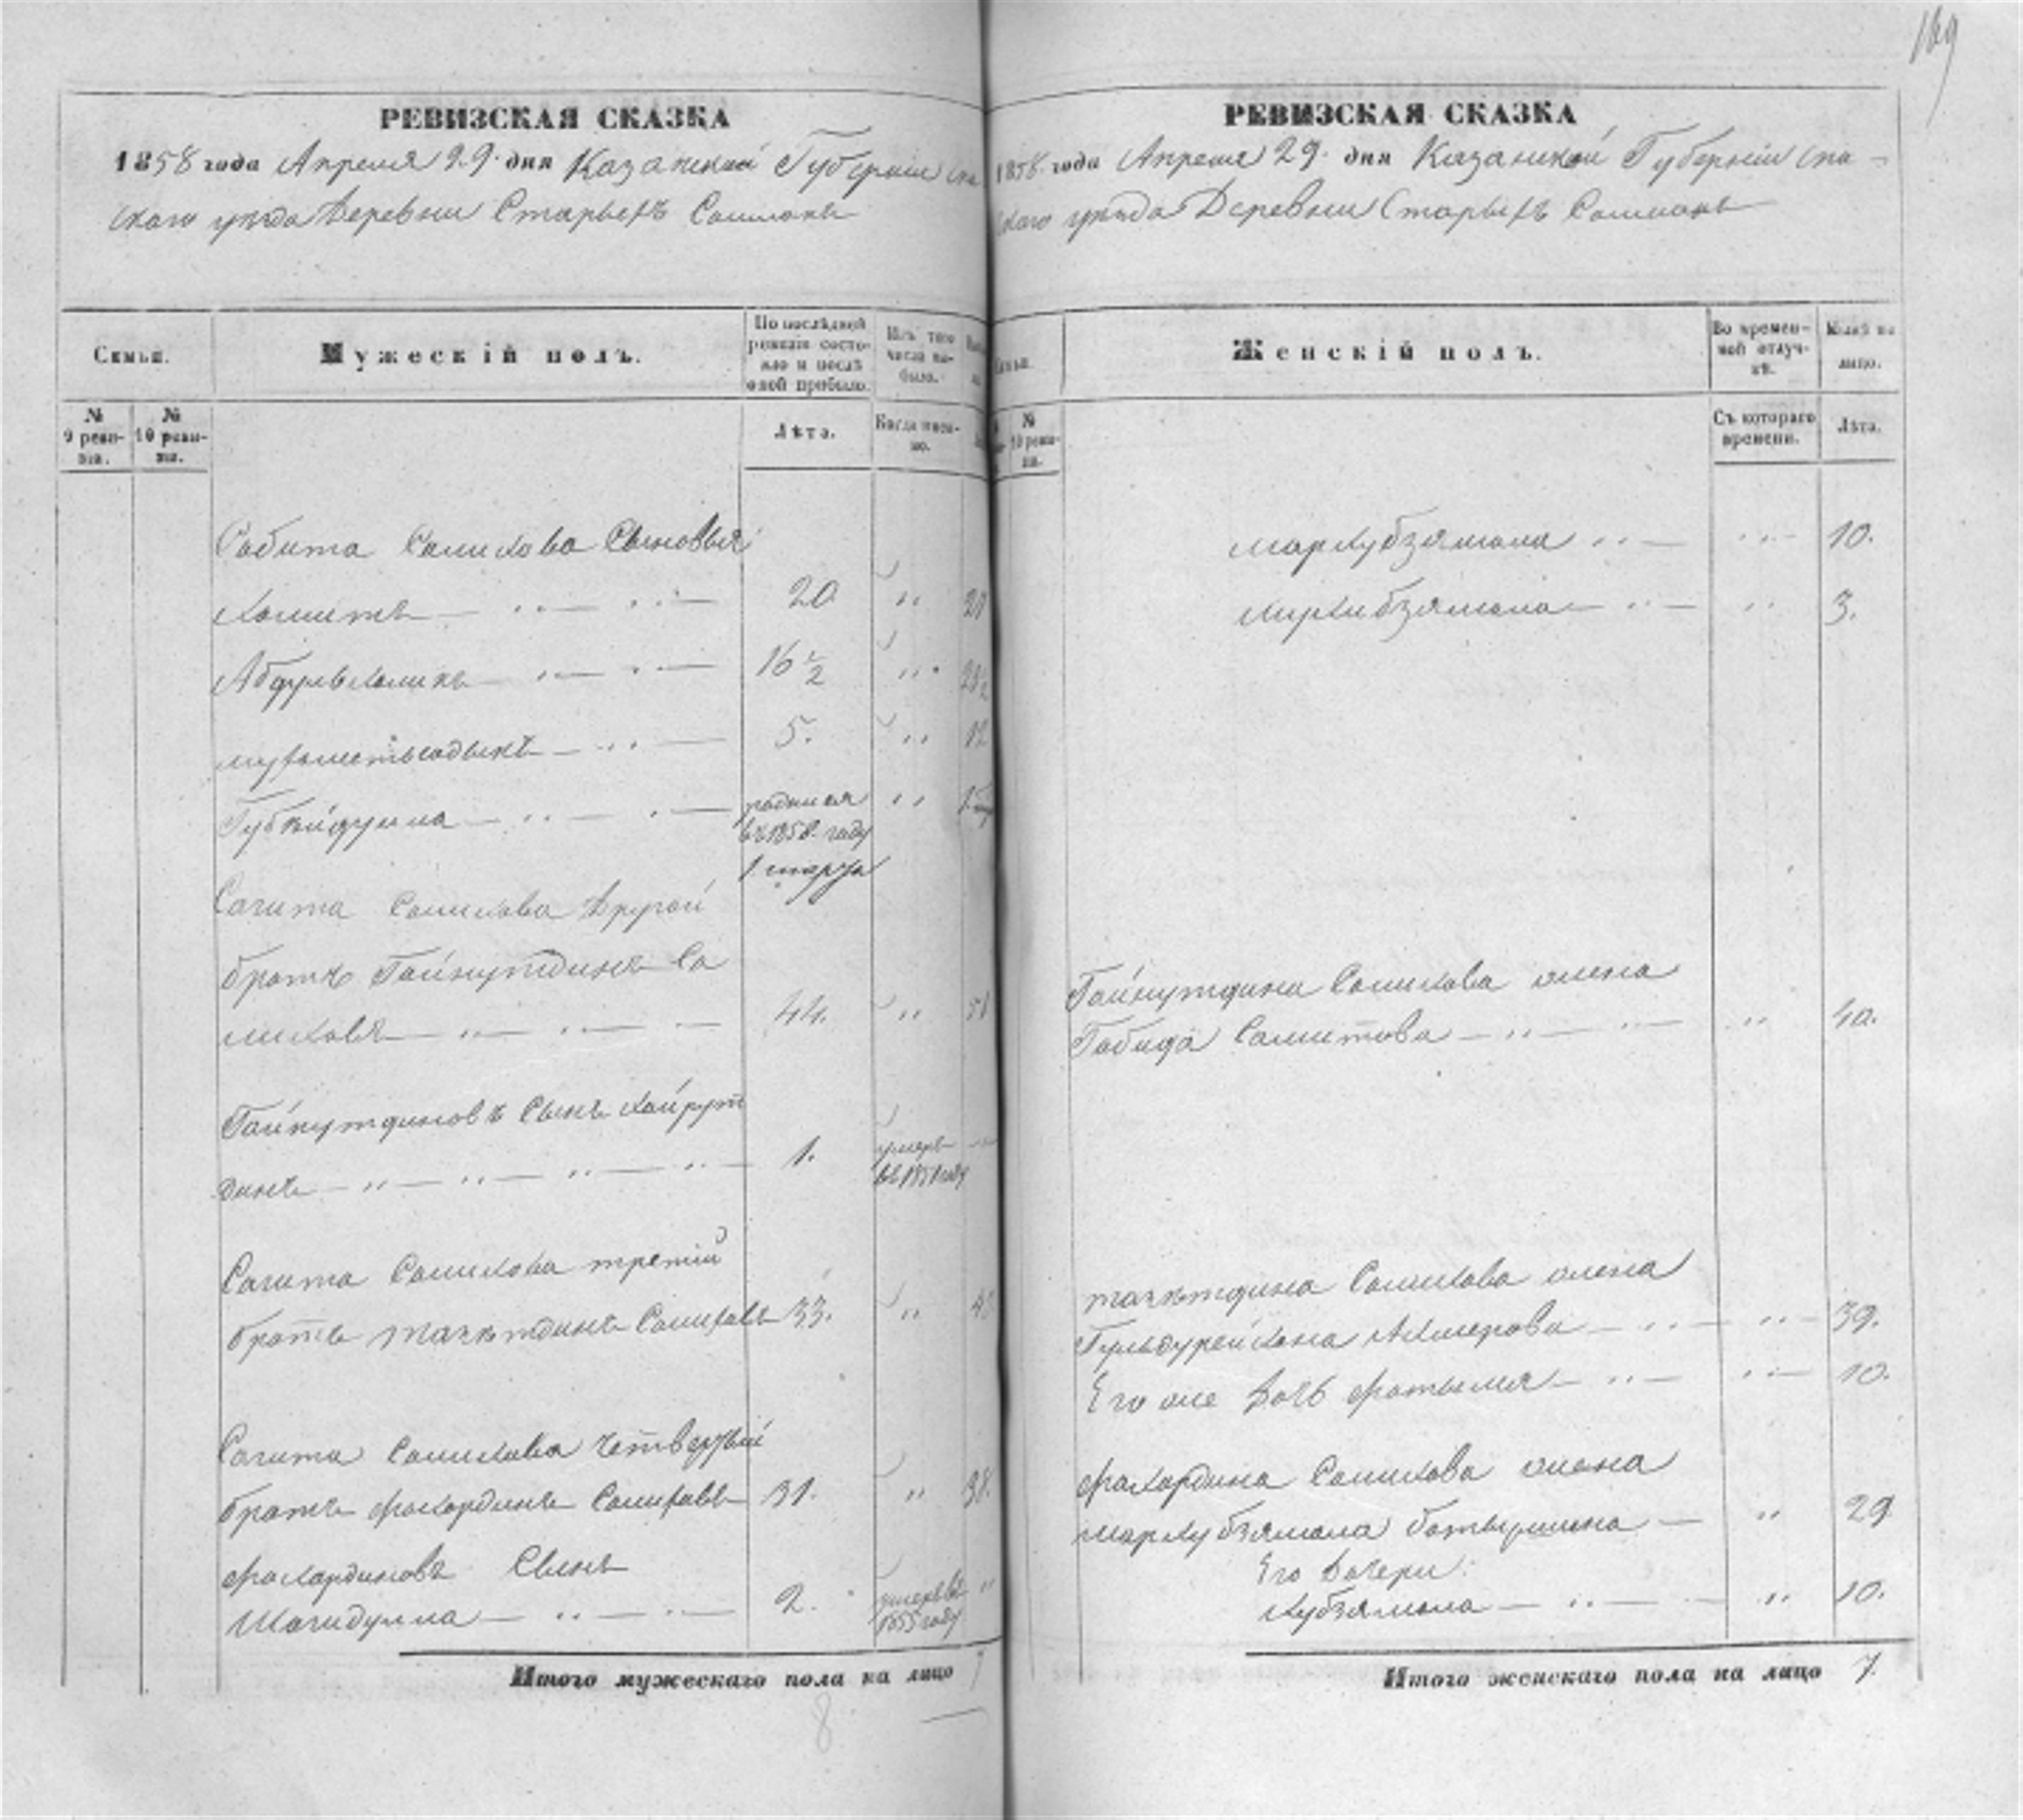 169
РЕВИЗСКАЯ СКАЗКА
1858 года Апреля 29 дня Казанской Губернiи Спа
скаго уезда Деревни Старыхъ Салманъ
Семьи.
Мужескiй полъ.
По послѣдней ревизiи состояло и послѣ оной прибыло.
Изъ того числа выбыло.
№ 9 ревизiи.
№ 10 ревизiи.
Лѣта.
Когда именно.
Сабита Салихова Сыновья
Хамитъ 20 " 2
Абдулвхаликъ 16 1/2 "
мухаметьсадыкъ 5. " 12
Губѣйдулла родился въ 1858 году 1 марта "
Сагита Салихова Другой
братъ Гайнутдинъ Са
лиховъ 44. " 51
Гайнутдиновъ Сынъ Хайрут
динъ 1. умеръ въ 1851 году
Сагита Салихова третiй
братъ тазетдинъ Салиховъ 33. "
Сагита Салихова четвертый
братъ фахардинъ Салиховъ 31. " 38.
фахардиновъ Сынъ
Шагидулла 2. умеръ въ 1855 году "
Итого мужескаго пола на лицо 7
8
РЕВИЗСКАЯ СКАЗКА
1858 года Апреля 29 дня Казанской Губернiи Спа-
скаго уезда Деревни Старыхъ Салманъ
Семьи.
Женскiй полъ.
Во временной отлучкѣ.
№ 10 ревизiи.
Съ котораго времени.
Лѣта.
мархубзямала " 10.
3.
Гайнутдина Салихова жена
Габида Саитова " 40.
тазетдина Салихова жена
" 39.
Его же дочь фатыма " 10.
фахардина Салихова жена
мархубзямала " 29
Его дочери:
хубзямала " 10.
Итого женскаго пола на лицо 7.